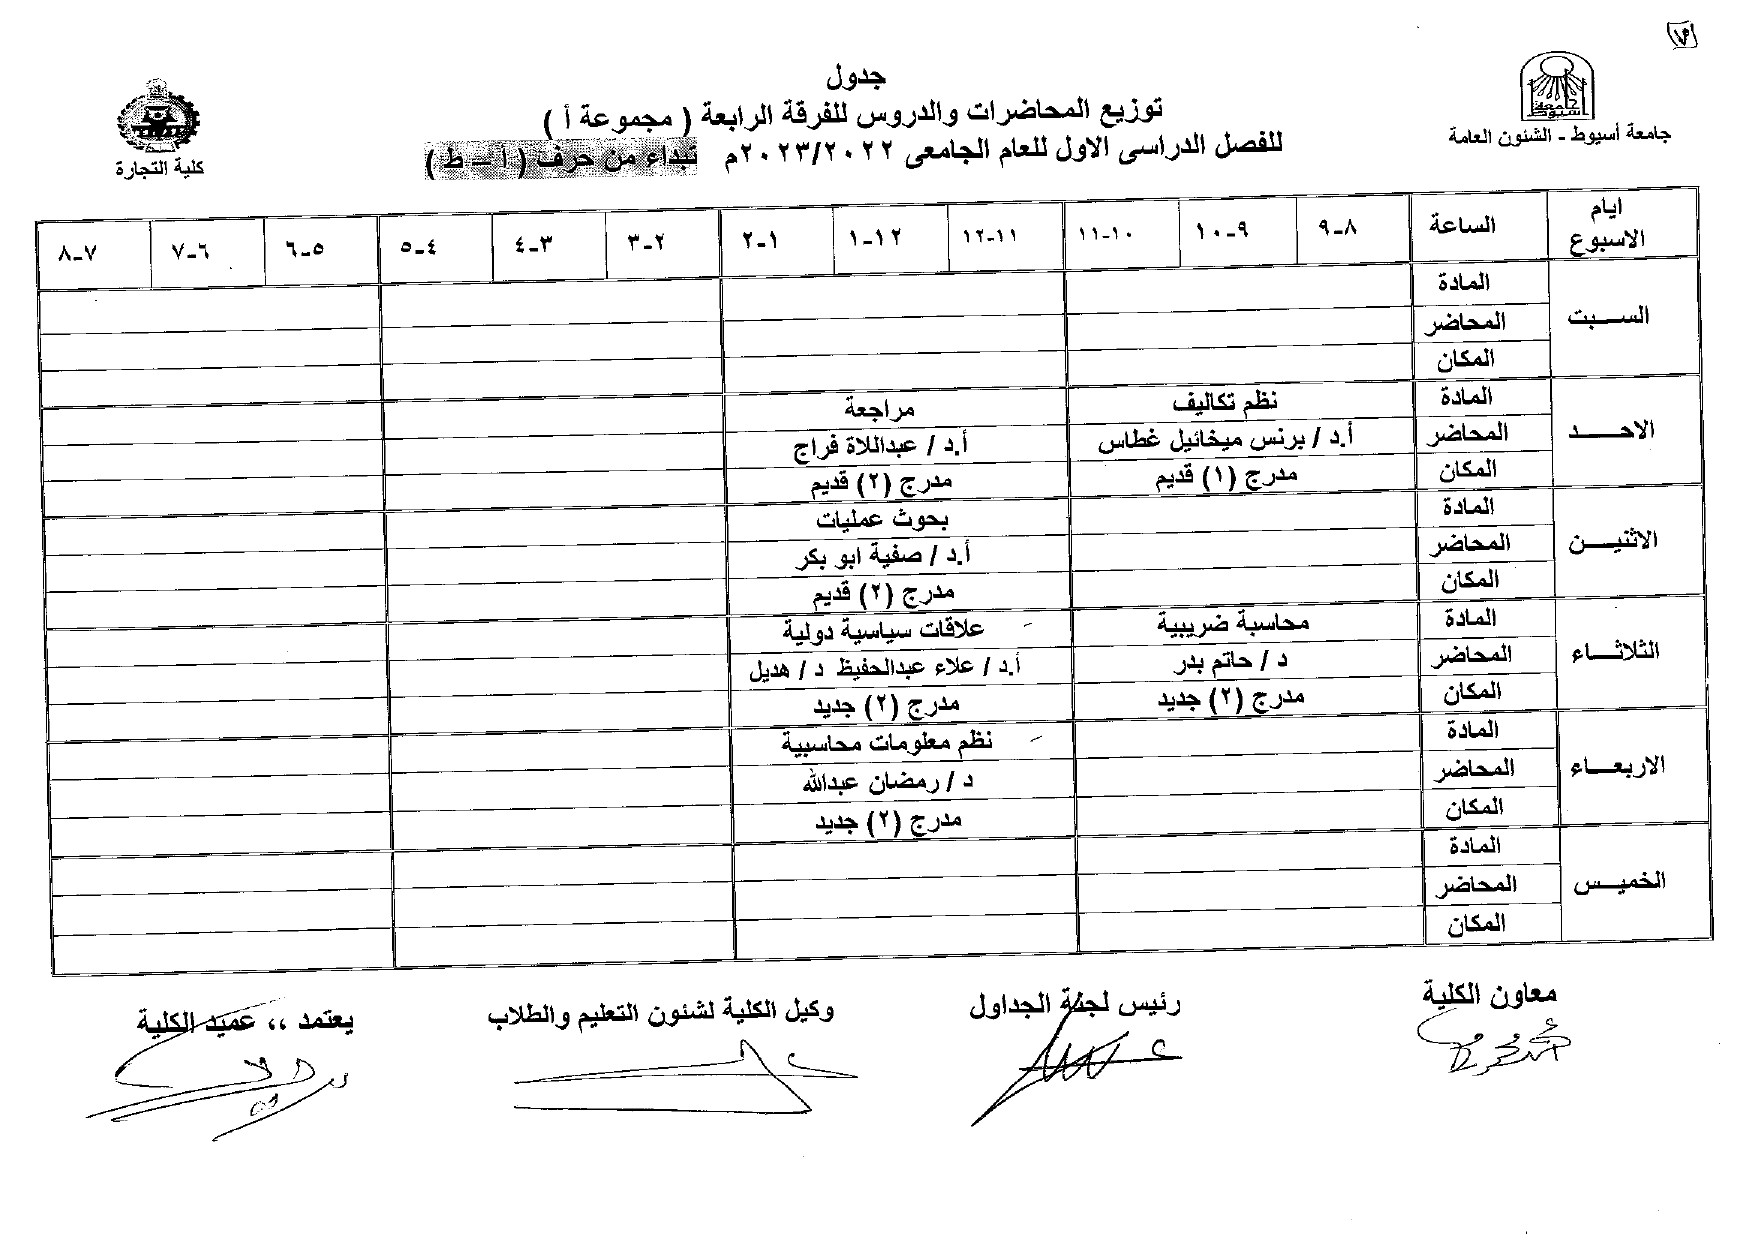 جدول
توزيع المحاضرات والدروس للفرقة الرابعة ( مجموعة أ )
للفصل الدراسى الاول للعام الجامعى ٢٠٢٣/٢٠٢٢م تبداء من حرف ( أ – ط )
جامعة أسيوط
جامعة أسيوط - الشئون العامة
كلية التجارة
ايام الاسبوع
الساعة
٨-٩
٩-١٠
١٠-١١
١١-١٢
١٢-١
١-٢
٢-٣
٣-٤
٤-٥
٥-٦
٦-٧
٧-٨
السبت
المادة
المحاضر
المكان
الاحد
المادة نظم تكاليف مراجعة
المحاضر أ.د / برنس ميخائيل غطاس أ.د / عبداللاة فراج
المكان مدرج (١) قديم مدرج (٢) قديم
الاثنين
المادة بحوث عمليات
المحاضر أ.د / صفية ابو بكر
المكان مدرج (٢) قديم
الثلاثاء
المادة محاسبة ضريبية علاقات سياسية دولية
المحاضر د / حاتم بدر أ.د / علاء عبدالحفيظ د / هديل
المكان مدرج (٢) جديد مدرج (٢) جديد
الاربعاء
المادة نظم معلومات محاسبية
المحاضر د / رمضان عبدالله
المكان مدرج (٢) جديد
الخميس
المادة
المحاضر
المكان
معاون الكلية
رئيس لجنة الجداول
وكيل الكلية لشئون التعليم والطلاب
يعتمد ،، عميد الكلية